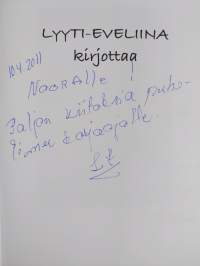 LYYTI-EVELIINA
kirjottaa
10.4.2011
NOORALLE!
Paljon kiitoksia puhe-
limen korjaajalle.